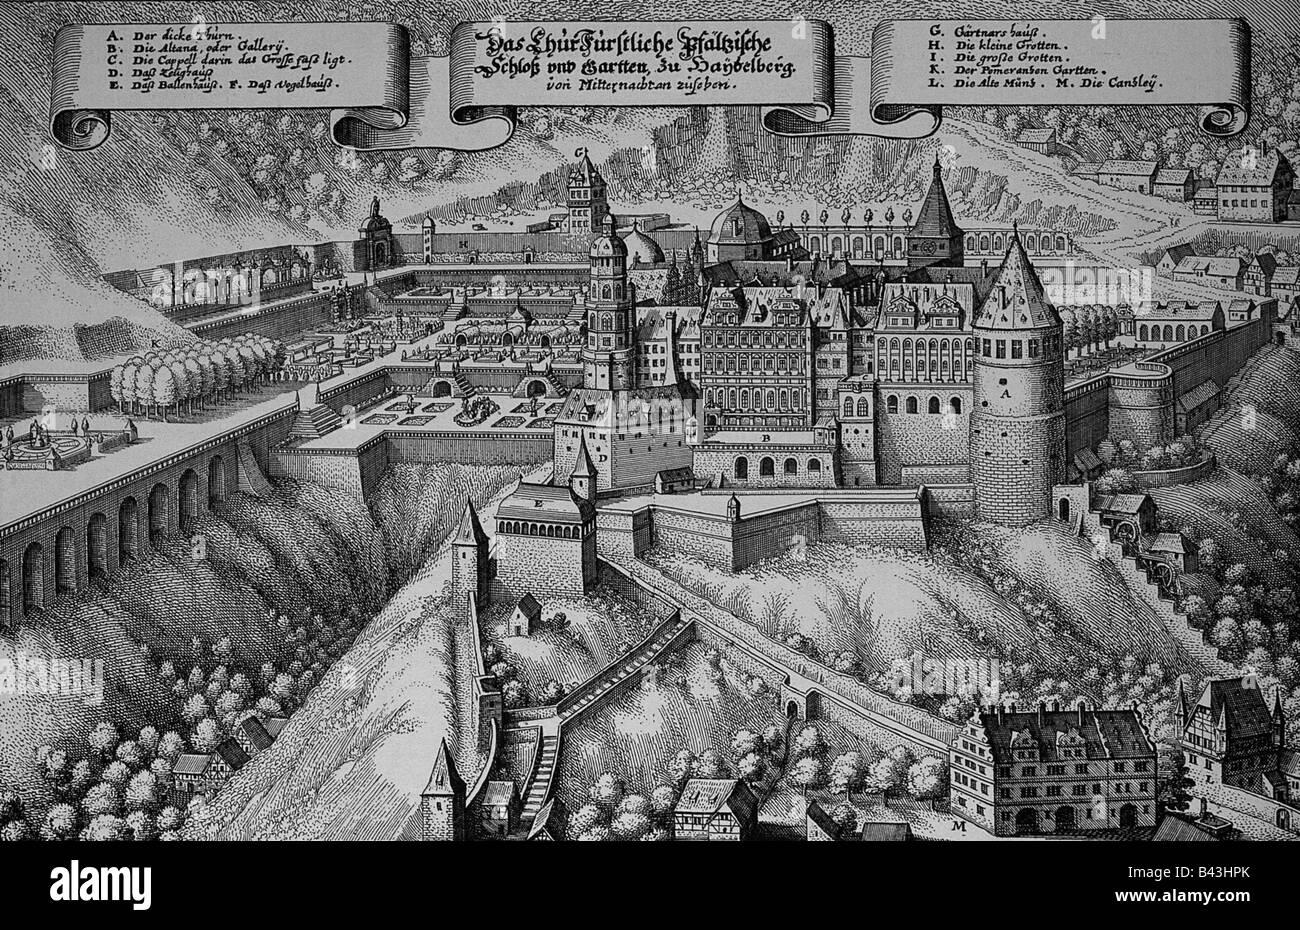 A. Der dicke Thurn.
B. Die Altana, oder Gallerÿ.
C. Die Cappell darin das Grosse fass ligt.
D. Daß Zeughauß
E. Daß Ballenhauß. F. Daß Vogelhauß.
Das Chür Fürstliche Pfältzische
Schloß vnd Gartten, zu Haÿdelberg.
von Mitternacht an zusehen.
G. Gärtners hauß.
H. Die kleine Grotten.
I. Die große Grotten.
K. Der Pomeranßen Gartten.
L. Die Alte Müntz. M. Die Cantzleÿ.
G
H
K
A
B
D
E
L
M
alamy
Image ID: B43HPK
www.alamy.com